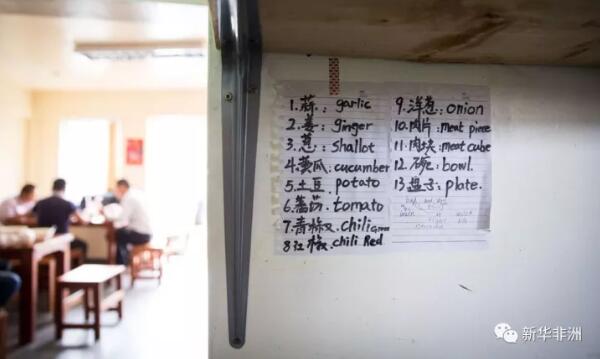 1.蒜: garlic
2.姜: ginger
3.葱: shallot
4.黄瓜:cucumber
5.土豆 potato
6.蕃茄: tomato
7.青椒.chili Green
8.红椒.chili Red
9.洋葱:onion
10.肉片:meat piece
11.肉块:meat cube
12.碗: bowl.
13.盘子:plate.
新华非洲